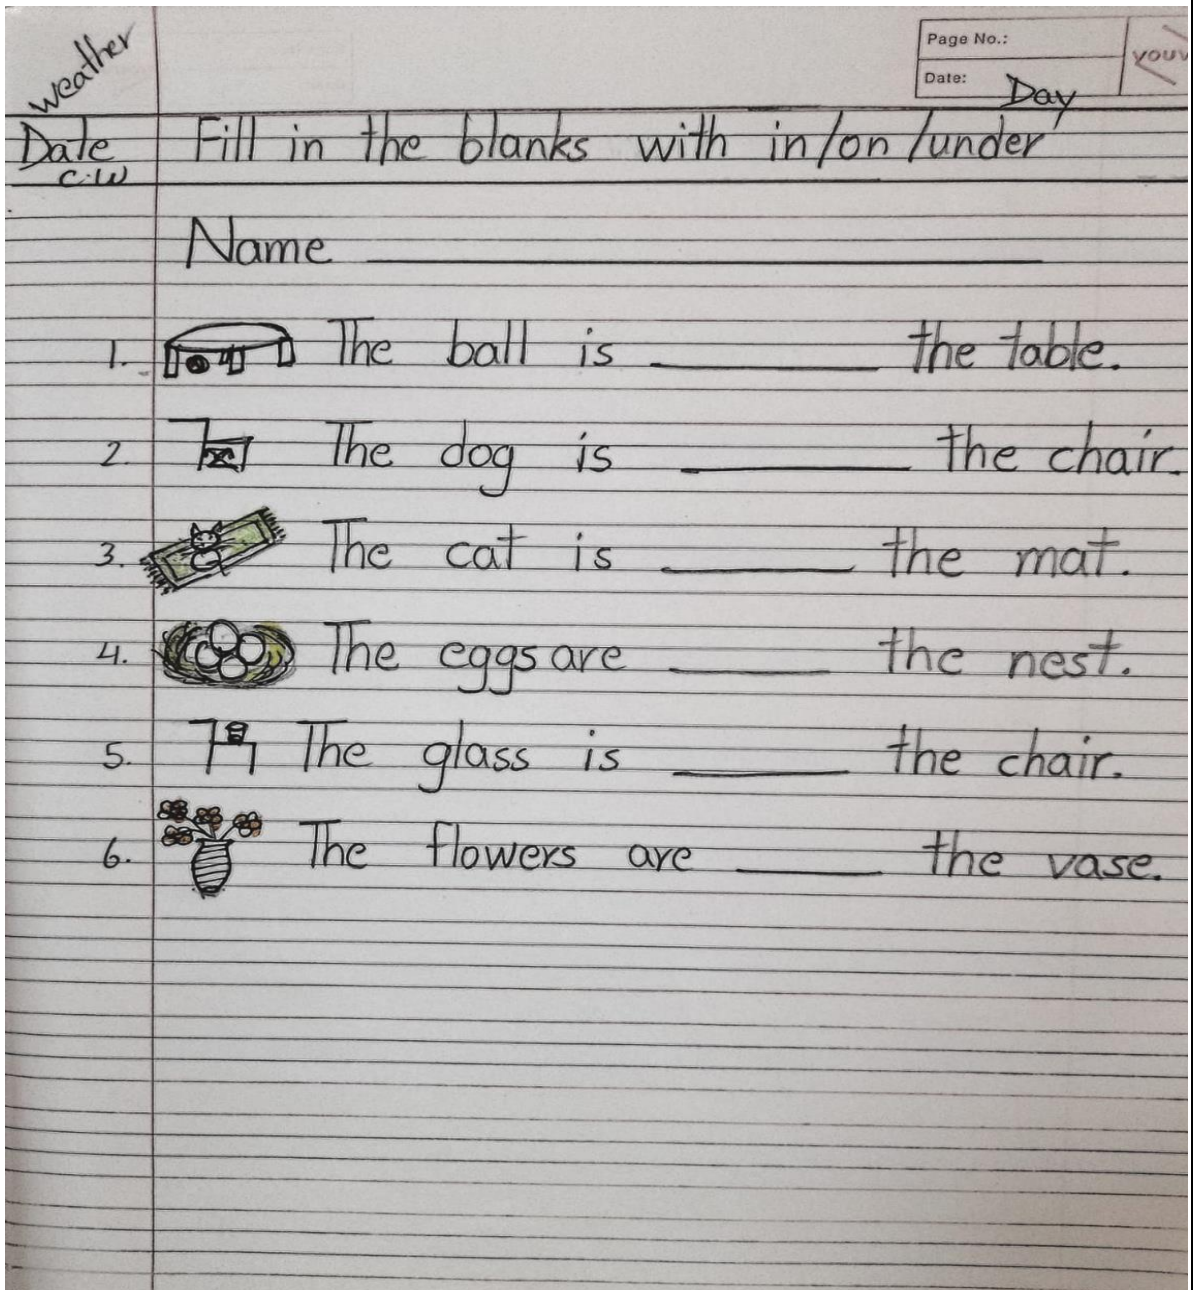 weather
Page No.:
youv
Date:
Day
Date Fill in the blanks with in/on/under
C.W
Name
1. The ball is ________ the table.
2. The dog is ________ the chair.
3. The cat is ________ the mat.
4. The eggs are ________ the nest.
5. The glass is ________ the chair.
6. The flowers are ________ the vase.